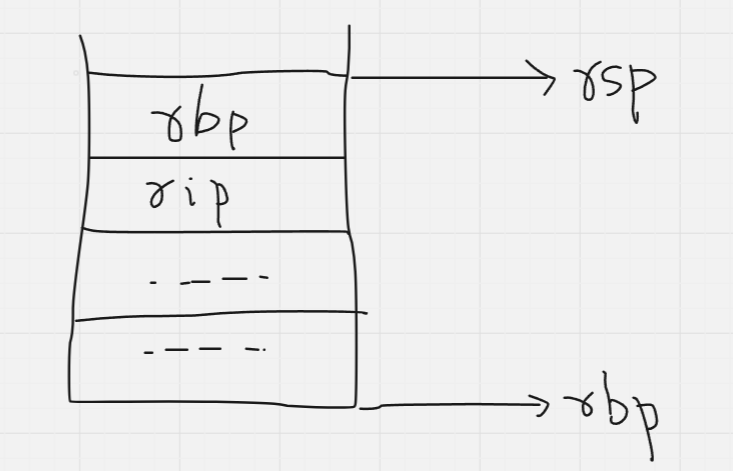 rsp
rbp
rip
rbp